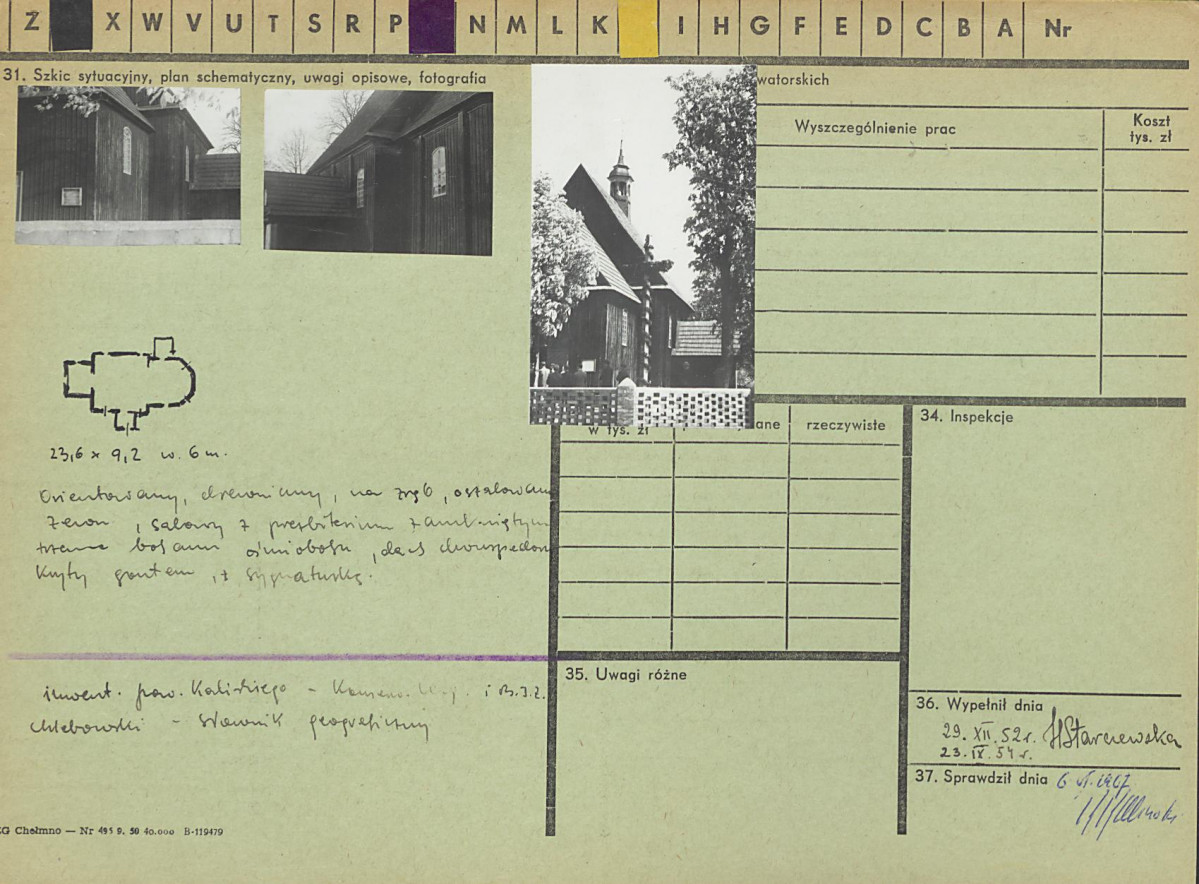 Z X W V U T S R P N M L K I H G F E D C B A Nr
31. Szkic sytuacyjny, plan schematyczny, uwagi opisowe, fotografia
watorskich
Wyszczególnienie prac
Koszt
tys. zł
23,6 x 9,2 w. 6 m.
Orientowany, drewniany, na zrąb, oszalowany
zewn, salowy z prezbiterium zamkniętym
trzema bokami ośmioboku, dach dwuspadow
Kryty gontem, z sygnaturką.
w tys. zł
ane
rzeczywiste
34. Inspekcje
inwent. pow. Kaliskiego - i B.I.Z.
Chlebowski - Słownik geograficzny
35. Uwagi różne
36. Wypełnił dnia
29. XII. 52 r. HStarczewska
23. IX. 54 r.
37. Sprawdził dnia 6 VI 1967
ZG Chełmno — Nr 495 9. 50 40.000 B-119479